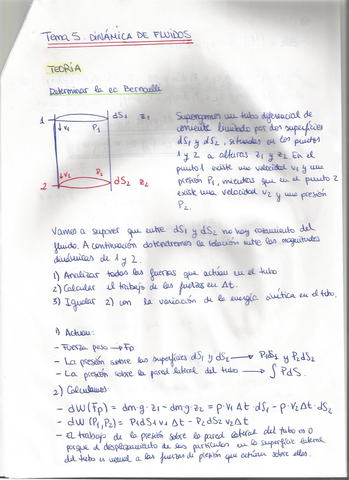 Tema 5. DINÁMICA DE FLUIDOS
TEORÍA
Determinar la ec Bernoelli
1 dS1 z1
v1 P1
v2 P2
2 dS2 z2
Supongamos un tubo diferencial de
corriente limitado por dos superficies
dS1 y dS2, situadas en los puntos
1 y 2 a alturas z1 y z2. En el
punto 1 existe una velocidad v1 y una
presión P1, mientras que en el punto 2
existe una velocidad v2 y una presión
P2.
Vamos a suponer que entre dS1 y dS2 no hay rozamiento del
fluido. A continuación obtendremos la relación entre las magnitudes
dinámicas de 1 y 2.
1) Analizar todas las fuerzas que actúan en el tubo
2) Calcular el trabajo de las fuerzas en Δt.
3) Igualar 2) con la variación de la energía cinética en el tubo.
1) Actúan:
- Fuerza peso → Fp
- La presión sobre las superficies dS1 y dS2 → P1dS1 y P2dS2
- La presión sobre la pared lateral del tubo → ∫PdS.
2) Calculamos:
- dW(Fp) = dm·g·z1 - dm·g·z2 = ρ·v1 Δt · dS1 - ρ·v2Δt·dS2
- dW (P1,P2) = P1dS1v1 Δt - P2dS2 v2Δt
- El trabajo de la presión sobre la pared lateral del tubo es 0
porque el desplazamiento de las partículas en la superficie lateral
del tubo es normal a las fuerzas de presión que actúan sobre ellas.